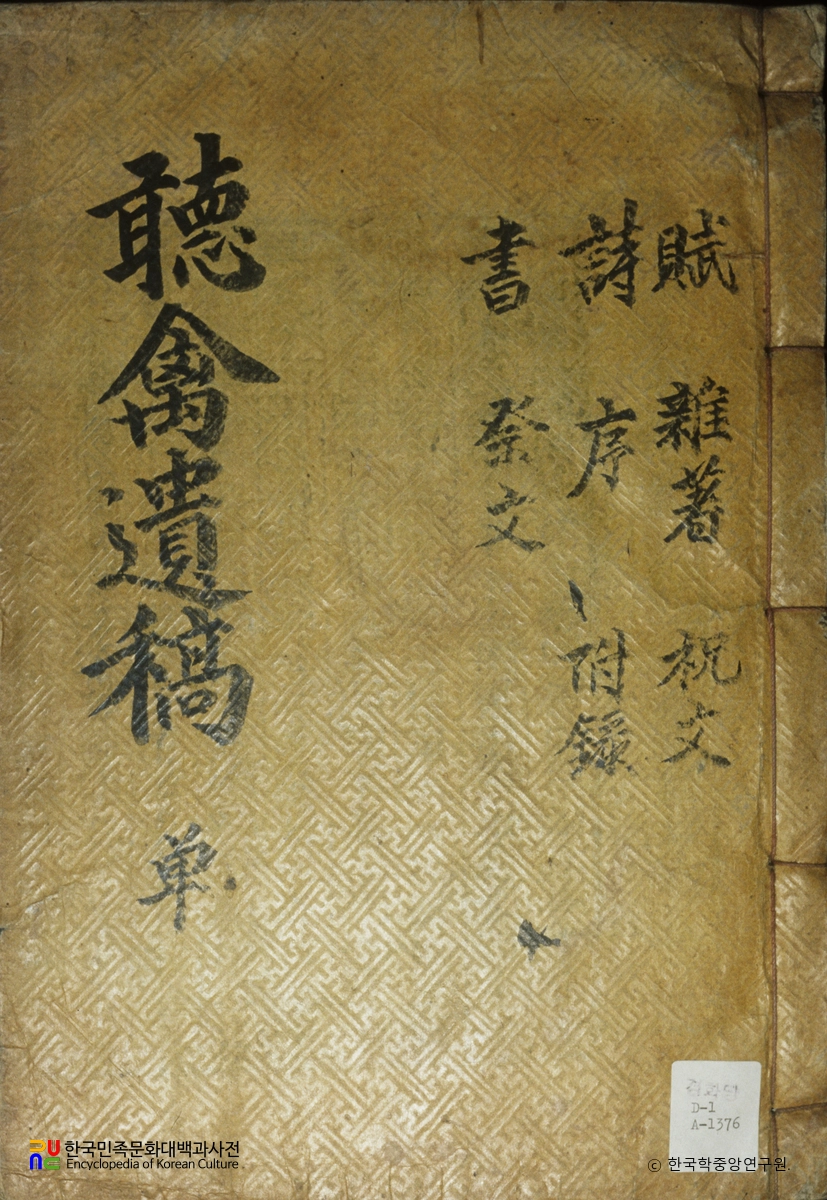 賦 雜著 祝文
詩 序 附錄
書 祭文
聽禽遺稿 单
D-1
A-1376
한국민족문화대백과사전
Encyclopedia of Korean Culture
© 한국학중앙연구원